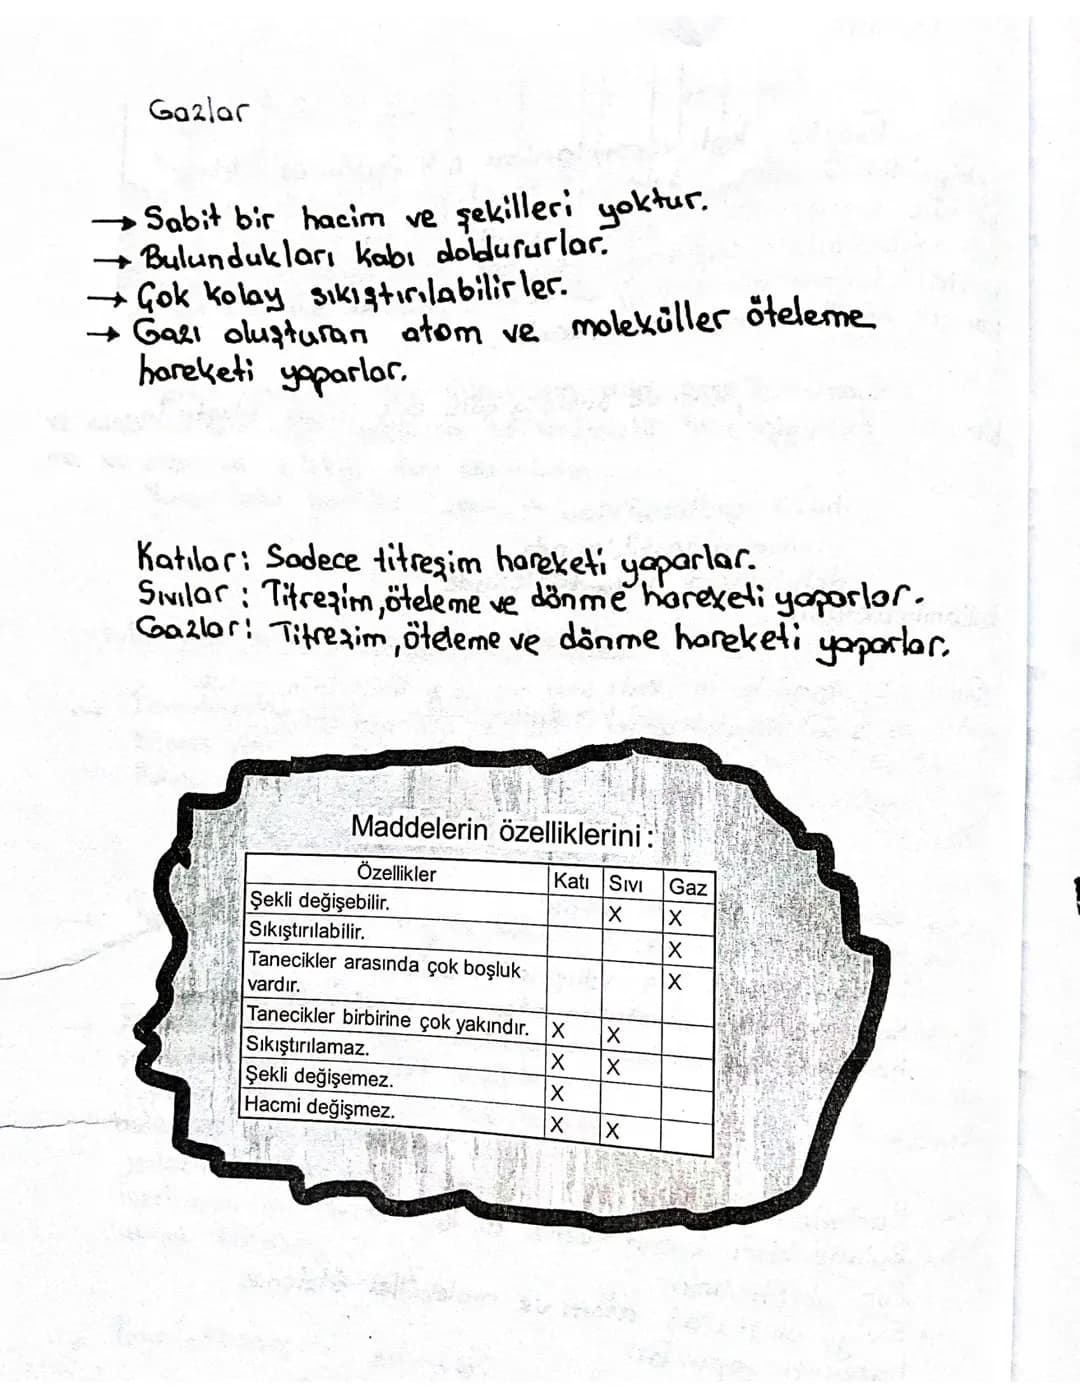 Gazlar
→ Sabit bir hacim ve şekilleri yoktur.
→ Bulundukları kabı doldururlar.
→ Çok kolay sıkıştırılabilirler.
→ Gazı oluşturan atom ve moleküller öteleme
hareketi yaparlar.
Katılar: Sadece titreşim hareketi yaparlar.
Sıvılar: Titreşim, öteleme ve dönme hareketi yaparlar.
Gazlar: Titreşim, öteleme ve dönme hareketi yaparlar.
Maddelerin özelliklerini:
Özellikler Katı Sıvı Gaz
Şekli değişebilir. X X
Sıkıştırılabilir. X
Tanecikler arasında çok boşluk
vardır. X
Tanecikler birbirine çok yakındır. X X
Sıkıştırılamaz. X X
Şekli değişemez. X
Hacmi değişmez. X X